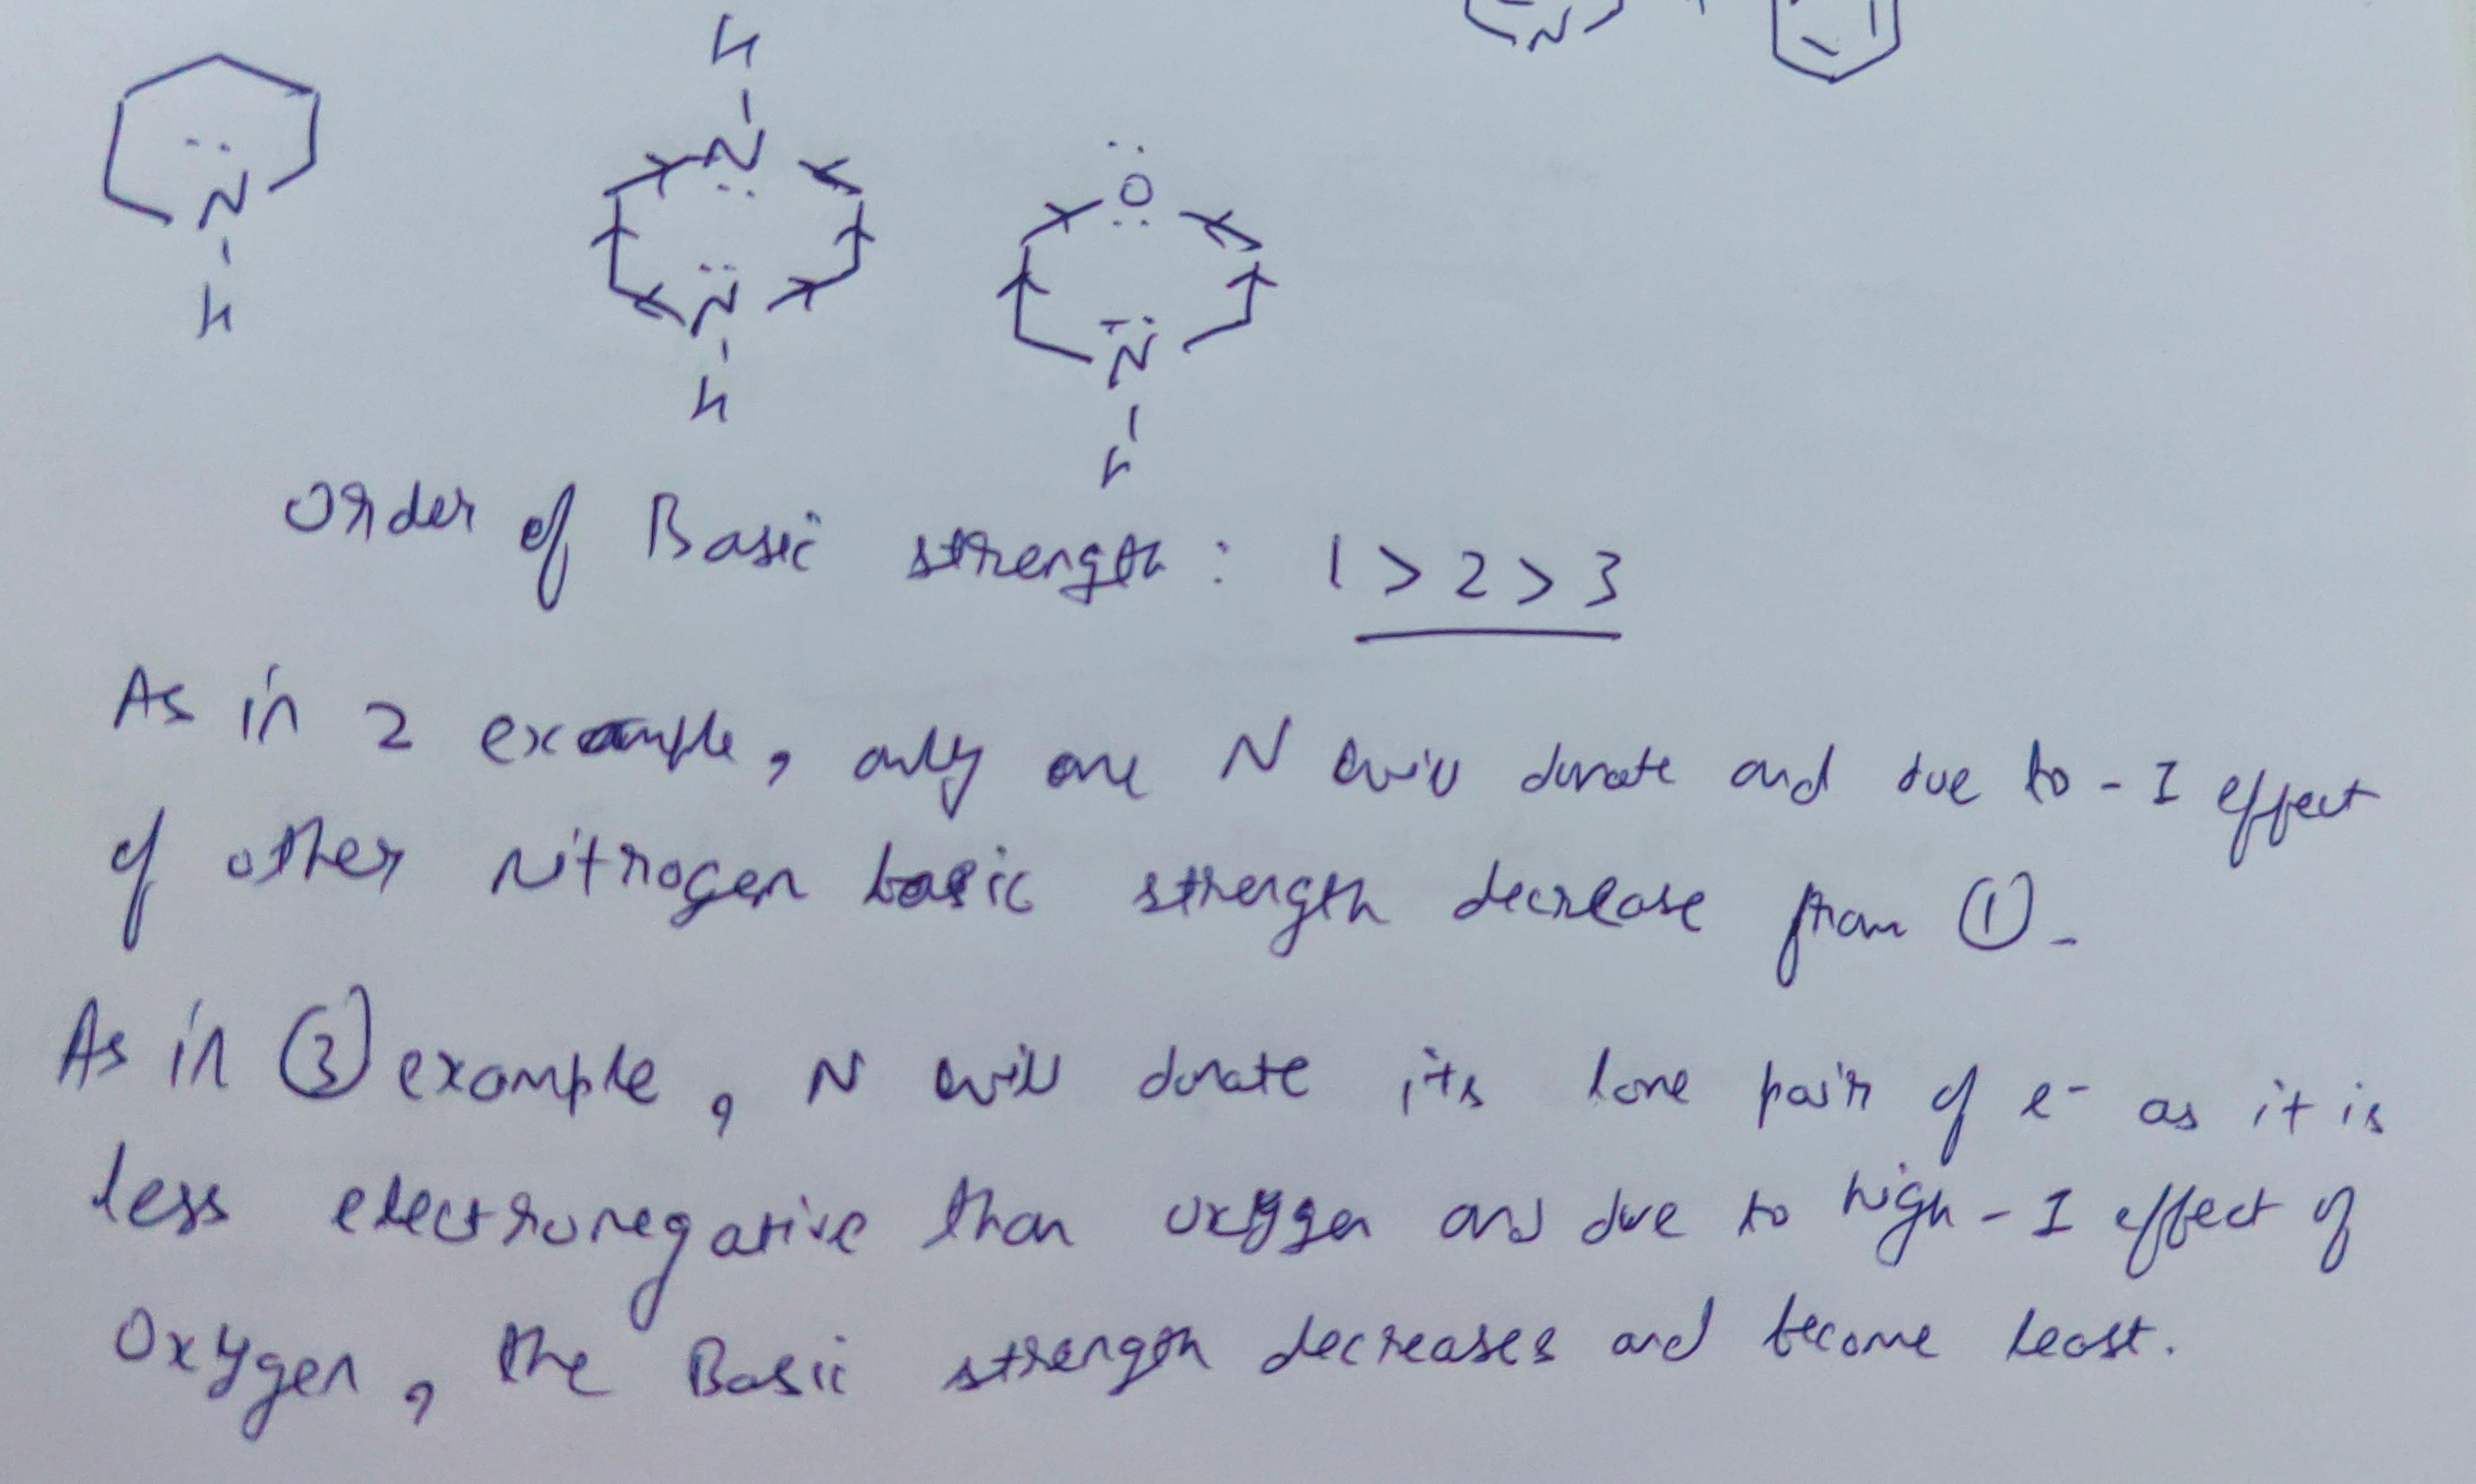 H
N
N
H
N
H
O
N
H
N
H
Order of Basic strength : 1 > 2 > 3
As in 2 example, only one N will donate and due to - I effect
of other Nitrogen basic strength decrease from ①.
As in ③ example, N will donate its lone pair of e⁻ as it is
less electronegative than oxygen and due to high - I effect of
Oxygen, the Basic strength decreases and become least.